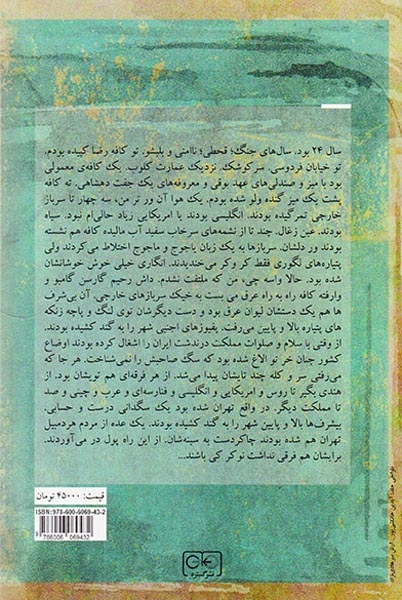 سال ۲۴ بود. سال‌های جنگ؛ قحطی؛ ناامنی و بلبشو. تو کافه رضا کپیده بودم.
تو خیابان فردوسی. سرکوشک. نزدیک عمارت کلوب. یک کافه‌ی معمولی
بود با میز و صندلی‌های عهد بوقی و معروفه‌های یک جفت دهشاهی. ته کافه
پشت یک میز گنده ولو شده بودم. یک هوا آن ور تر من، سه چهار تا سرباز
خارجی تمرگیده بودند. انگلیسی بودند یا امریکایی زیاد حالی‌ام نبود. سیاه
بودند. عین زغال. چند تا از نشمه‌های سرخاب سفید آب مالیده کافه هم نشسته
بودند ور دلشان. سربازها به یک زبان یاجوج و ماجوج اختلاط می‌کردند ولی
پتیاره‌های لگوری فقط کر و کر می‌خندیدند. انگاری خیلی خوش خوشانشان
شده بود. حالا واسه چی، من که ملتفت نشدم. داش رحیم گارسن گامبو و
وارفته کافه راه به راه عرق می بست به خیک سربازهای خارجی. آن بی‌شرف
ها هم یک دستشان لیوان عرق بود و دست دیگرشان توی لنگ و پاچه زنکه
های پتیاره بالا و پایین می‌رفت. یفیوزهای اجنبی شهر را به گند کشیده بودند.
از وقتی با سلام و صلوات مملکت درندشت ایران را اشغال کرده بودند اوضاع
کشور چنان خر تو الاغ شده بود که سگ صاحبش را نمی‌شناخت. هر جا که
می‌رفتی سر و کله چند تایشان پیدا می‌شد. از هر فرقه‌ای هم تویشان بود. از
هندی بگیر تا روس و امریکایی و انگلیسی و فنارسه‌ای و عرب و چینی و صد
تا مملکت دیگر. در واقع تهران شده بود یک سگدانی درست و حسابی.
بیشرف‌ها بالا و پایین شهر را به گند کشیده بودند. یک عده از مردم هردمبیل
تهران هم شده بودند چاکردست به سینه‌شان. از این راه پول در می‌آوردند.
برایشان هم فرقی نداشت نوکر کی باشند...
قیمت: ۴۵۰۰۰ تومان
ISBN: 978-600-6069-43-2
9 786006 069432
نشر گستره